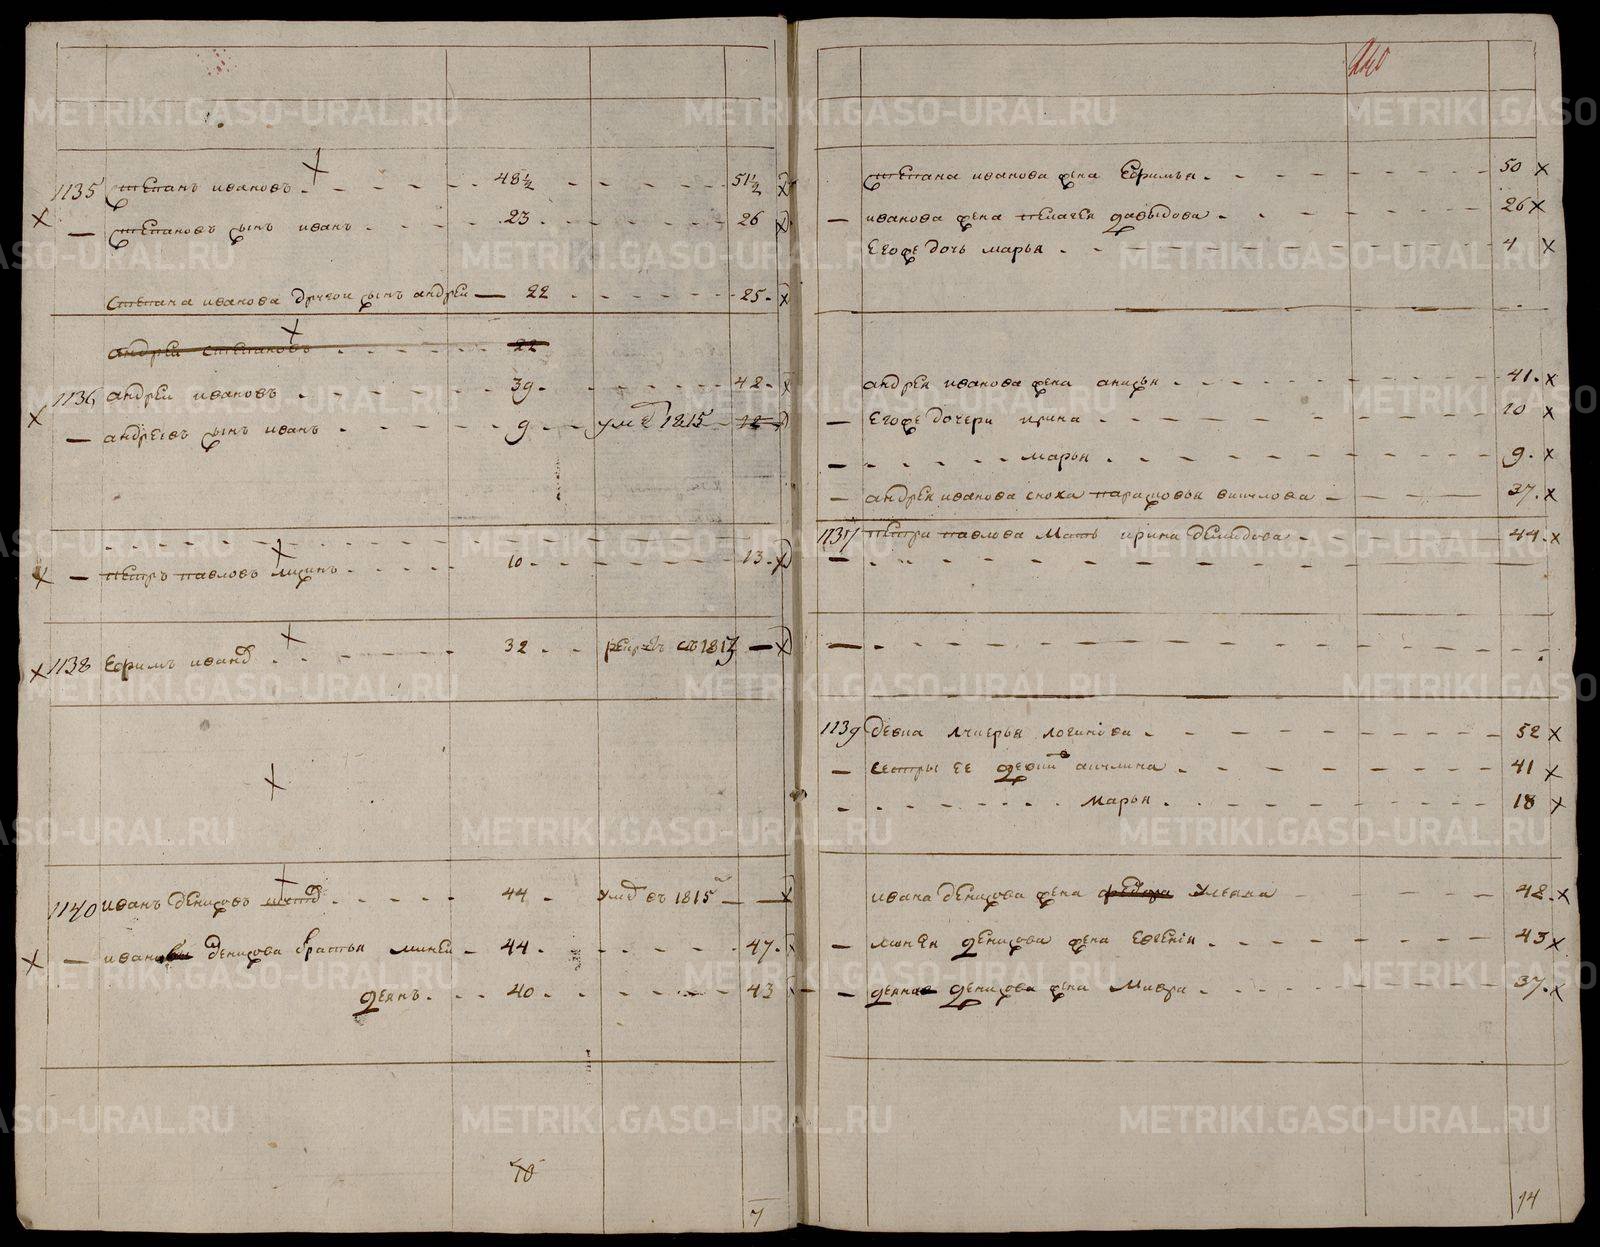 240
1135 степанъ ивановъ 48½ 51½ x
степановъ сынъ иванъ 23 26 x
степана иванова другои сынъ андреи 22 25 x
андреи степановъ 22
1136 андреи ивановъ 39 42 x
андреевъ сынъ иванъ 9 умѣ 1815 12
петръ павловъ 10 13 x
1138 ефимъ иван 32 въ 1813 x
иванъ денисовъ 44 умѣ въ 1815 x
1140
денисова братья минеи 44 47
деянъ 40 43
10
7
степана иванова жена 50 x
иванова жена пелагея давыдова 26 x
егоже дочь марья 4 x
андрея иванова жена анисья 41 x
егоже дочери ирина 10 x
марья 9 x
андрея иванова сноха парасковья 37 x
1137 петра павлова мать ирина демидова 44 x
1139 девка лукерья логинова 52 x
сестры ее девки акулина 41 x
марья 18 x
ивана денисова жена федора ульяна 48 x
минея денисова жена евгения 43 x
деяна денисова жена мавра 37 x
14
METRIKI.GASO-URAL.RU